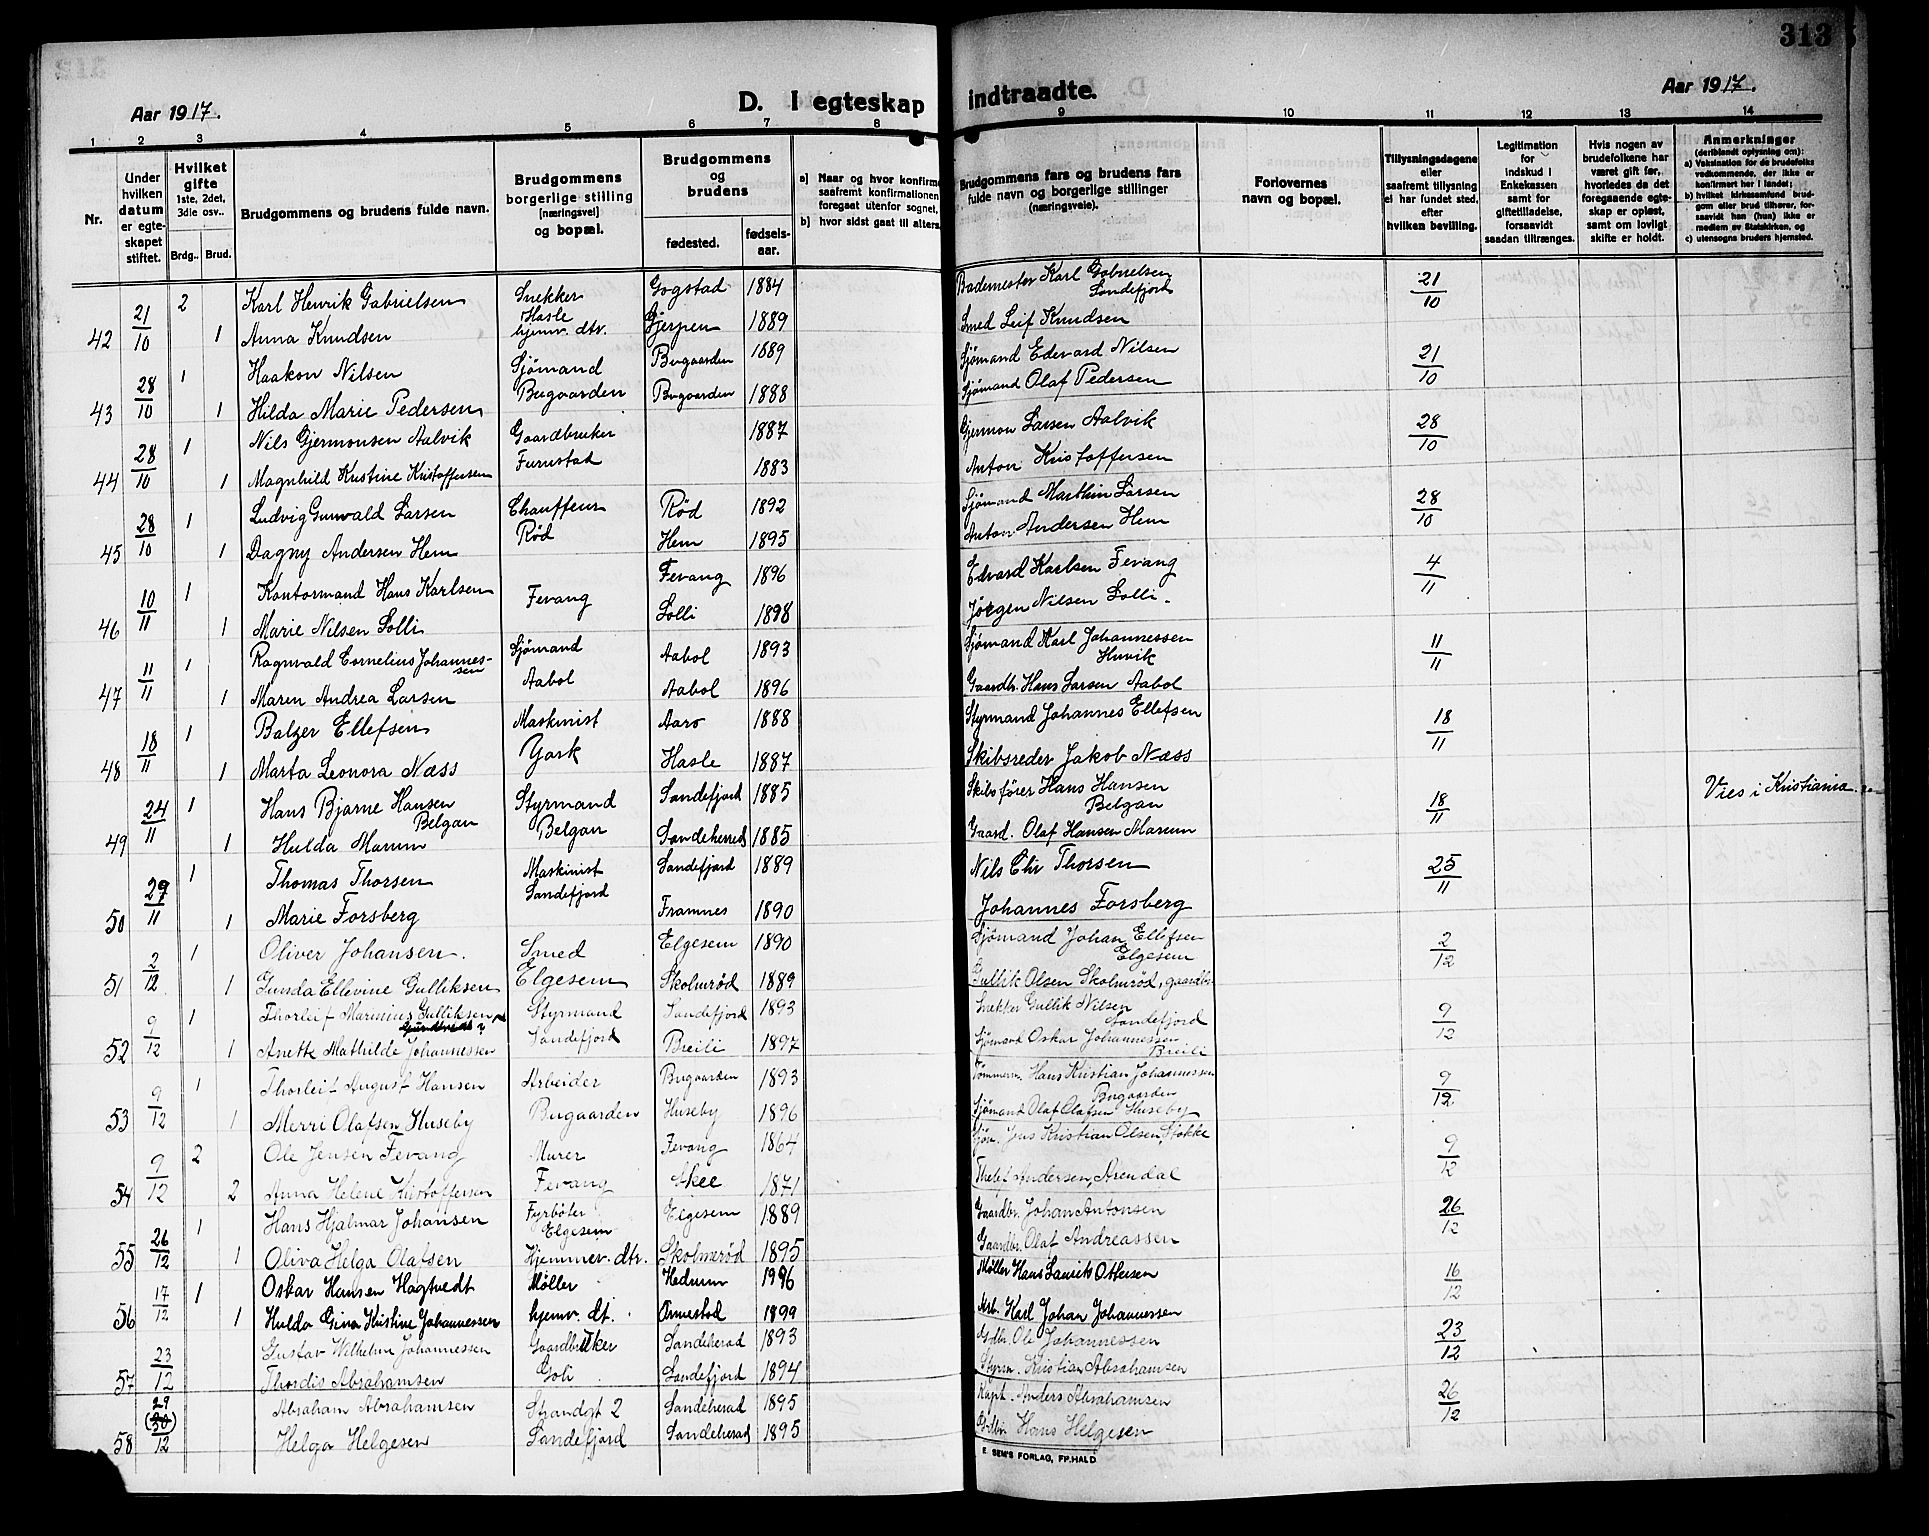 313
Aar 1917.
D. I egteskap indtraadte.
Aar 1917.
1 2 3 4 5 6 7 8 9 10 11 12 13 14
Nr.
Under hvilken datum er egteskapet stiftet.
Hvilket gifte 1ste, 2det, 3die osv..
Brdg.. Brud.
Brudgommens og brudens fulde navn.
Brudgommens borgerlige stilling [næringsvei] og bopæl.
Brudgommens og brudens
fødested. fødsels-aar.
a) Naar og hvor konfirme
saafremt konfirmationen
foregaat utenfor sognet,
b) hvor sidst gaat til alters.
Brudgommens fars og brudens fars fulde navn og borgerlige stillinger (næringsveie).
Forlovernes navn og bopæl.
Tillysningsdagene eller saafremt tillysning ei har fundet sted, efter hvilken bevilling.
Legitimation for indskud i Enkekassen samt for giftetilladelse, forsaavidt saadan tiltrænges.
Hvis nogen av brudefolkene har været gift før, hvorledes da det foregaaende egteskap er opløst, samt om lovligt skifte er holdt.
Anmerkninger
(deriblandt oplysning om):
a) Vaksination for de brudefolks vedkommende, der ikke er konfirmert her i landet;
b) hvilket kirkesamfund brudgom eller brud tilhører, forsaavidt han (hun) ikke er medlem av Statskirken, og
c) utensogns bruders hjemsted.
42 21/10 2 Karl Henrik Gabrielsen Snekker Hasle Gogstad 1884 Bademester Karl Gabrielsen Sandefjord 21/10
1 Anna Knudsen hjemv. dtr. Gjerpen 1889 Smed Leif Knudsen
43 28/10 1 Haakon Nilsen Sjømand Bugaarden 1889 Sjømand Edvard Nilsen 21/10
1 Hilda Marie Pedersen Bugaarden Bugaarden 1888 Sjømand Olaf Pedersen
44 28/10 1 Nils Gjermonsen Aalvik Gaardbruker 1887 Gjermon Larsen Aalvik 28/10
1 Magnhild Kristine Kristoffersen Furustad 1883 Anton Kristoffersen
45 28/10 1 Ludvig Gunvald Larsen Chauffeur Rød 1892 Sjømand Marthin Larsen 28/10
1 Dagny Andersen Hem Rød Hem 1895 Anton Andersen Hem
46 10/11 1 Kontormand Hans Karlsen Fevang Fevang 1896 Edvard Karlsen Fevang 4/11
1 Marie Nilsen Solli Solli 1898 Jørgen Nilsen Solli.
47 11/11 1 Ragnvald Cornelius Johannes-sen Sjømand Aabol 1893 Sjømand Karl Johannessen Huvik 11/11
1 Maren Andrea Larsen Aabol Aabol 1896 Gaardbr. Hans Larsen Aabol
48 18/11 1 Balzer Ellefsen Maskinist Aaro 1888 Styrmand Johannes Ellefsen 18/11
1 Marta Leonora Næss York Hasle 1887 Skibsreder Jakob Næss
49 24/11 1 Hans Bjarne Hansen Belgan Styrmand Sandefjord 1885 Skibsfører Hans Hansen Belgan 18/11 Vies i Kristiania.
1 Hulda Marum Belgan Sandeherred 1885 Gaard. Olaf Hansen Marum
50 29/11 1 Thomas Thorsen Maskinist Sandefjord 1889 Nils Chr Thorsen 25/11
1 Marie Forsberg Sandefjord Framnes 1890 Johannes Forsberg
51 2/12 1 Oliver Johansen. Smed Elgesem 1890 Sjømand Johan Ellefsen Elgesem 2/12
1 Gunda Ellevine Gulliksen Elgesem Skolmrød 1889 Gullik Olsen Skolmrød, gaardbr
52 9/12 1 Thorleif Marinius Gulliksen Styrmand Sandefjord 1893 Snekker Gullik Nilsen Sandefjord 9/12
1 Anette Mathilde Johannessen Sandefjord Breili 1897 Sjømand Oskar Johannessen Breili
53 9/12 1 Thorleif August Hansen Arbeider Bugaarden 1893 Tømmerm. Hans Kristian Johannessen Bugaarden 9/12
1 Merri Olafsen Huseby Bugaarden Huseby 1896 Sjømand Olaf Olafsen Huseby
54 9/12 2 Ole Jensen Fevang Murer Fevang 1864 Sjøm. Jens Kristian Olsen, Stokke 9/12
2 Anna Helene Kristoffersen Fevang Skee 1871 Andersen, Arendal
55 26/12 1 Hans Hjalmar Johansen Fyrbøter Elgesem Elgesem 1889 Gaardbr. Johan Antonsen 26/12
1 Oliva Helga Olafsen Hjemmev. dtr. Skolmerød 1895 Gaardbr. Olaf Andreassen
56 17/12 1 Oskar Hansen Hagtvedt Møller Hedrum 1996 Møller Hans Laurits Ottersen 16/12
1 Hulda Gina Kristine Johannessen hjemv. dt. Ormestad 1899 Arb. Karl Johan Johannessen
57 23/12 Gustav Wilhelm Johannessen Gaardbruker Sandeherad 1893 Gdbr. Ole Johannessen 23/12
Thordis Abrahamsen Goli Sandefjord 1894 Styrm. Kristian Abrahamsen
58 29 (30)/12 Abraham Abrahamsen Strandgt 2 Sandeherad 1895 Kapt. Anders Abrahamsen 26/12
Helga Helgesen Sandefjord Sandeherad 1895 Hans Helgesen
E. SEM'S FORLAG, FR.HALD